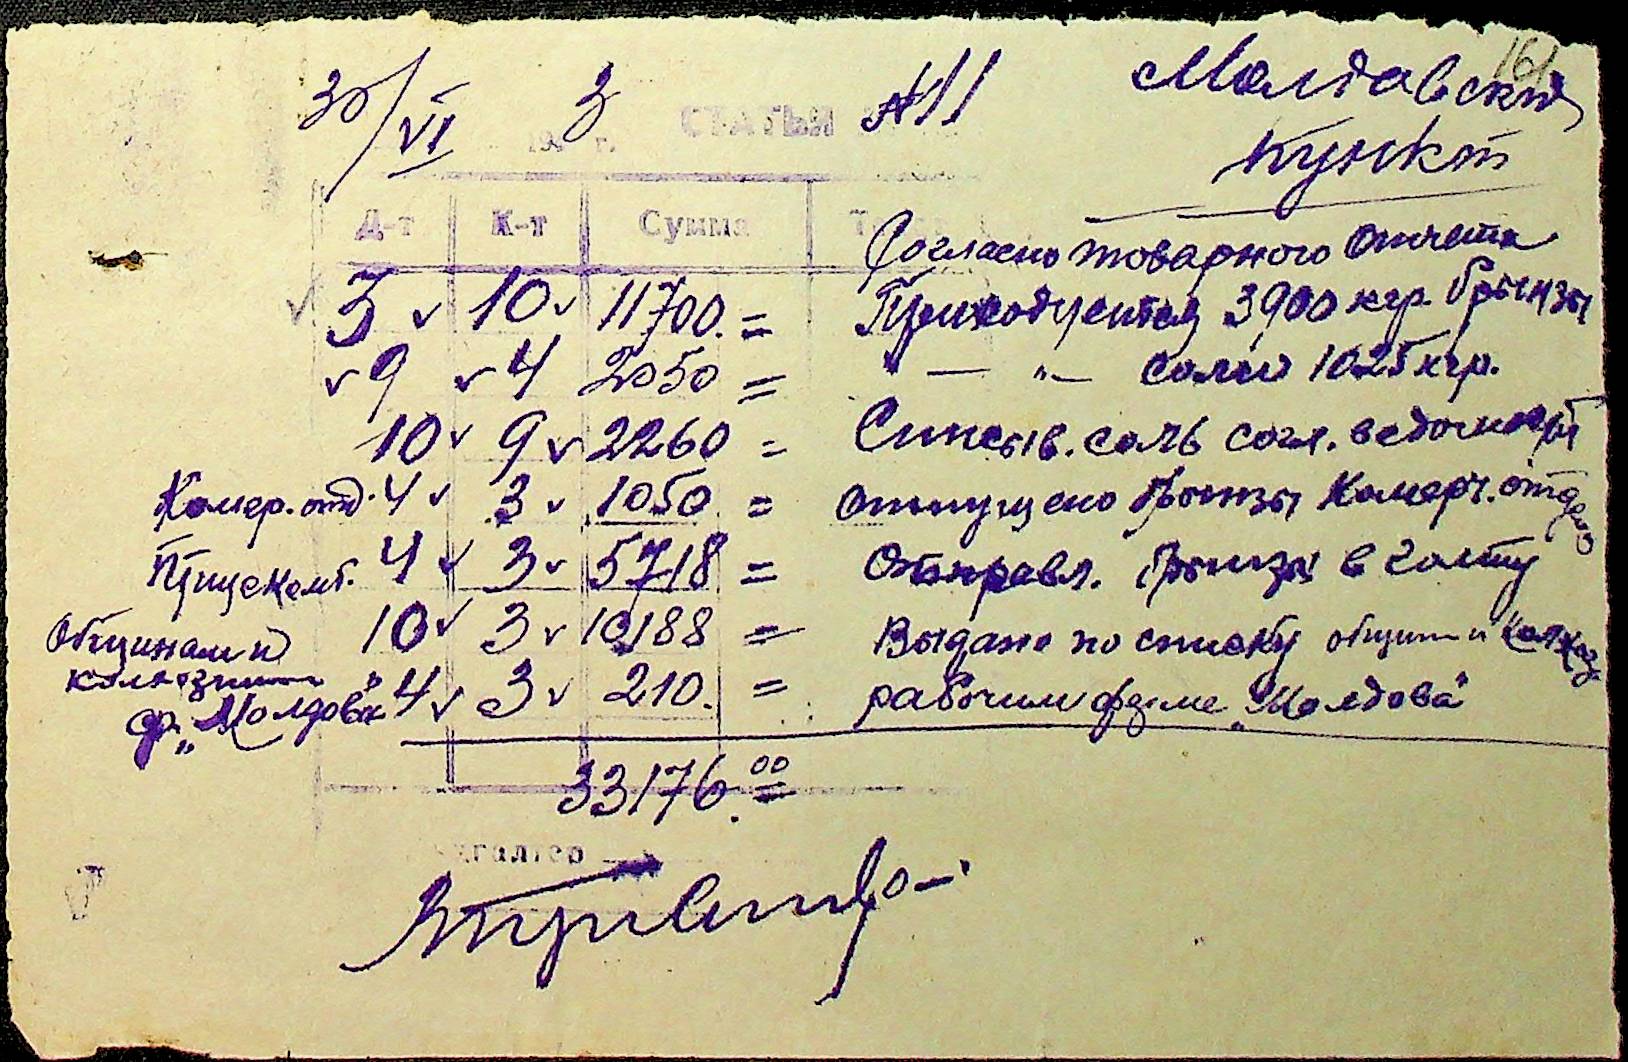 161
30/VI 3 СТАТЬИ №11 Молдавский
194 г. пункт
Д-т К-т Сумма
Согласно товарного отчета
3 10 11700= Приходуется 3900 кгр. брынзы
9 4 2050= " — " — соли 1025 кгр.
10 9 2260= Списыв. соль согл. ведомости
Комер. отд. 4 3 1050= Отпущено брынзы Комерч. отделю
Прищекомб. 4 3 5718= Отправл. брынзы в
Общинам и 10 3 10188= Выдано по списку общин и колхоз
колхозник " 4 3 210.= рабочим ферме "Молдова"
ф. "Молдова"
33176.00=